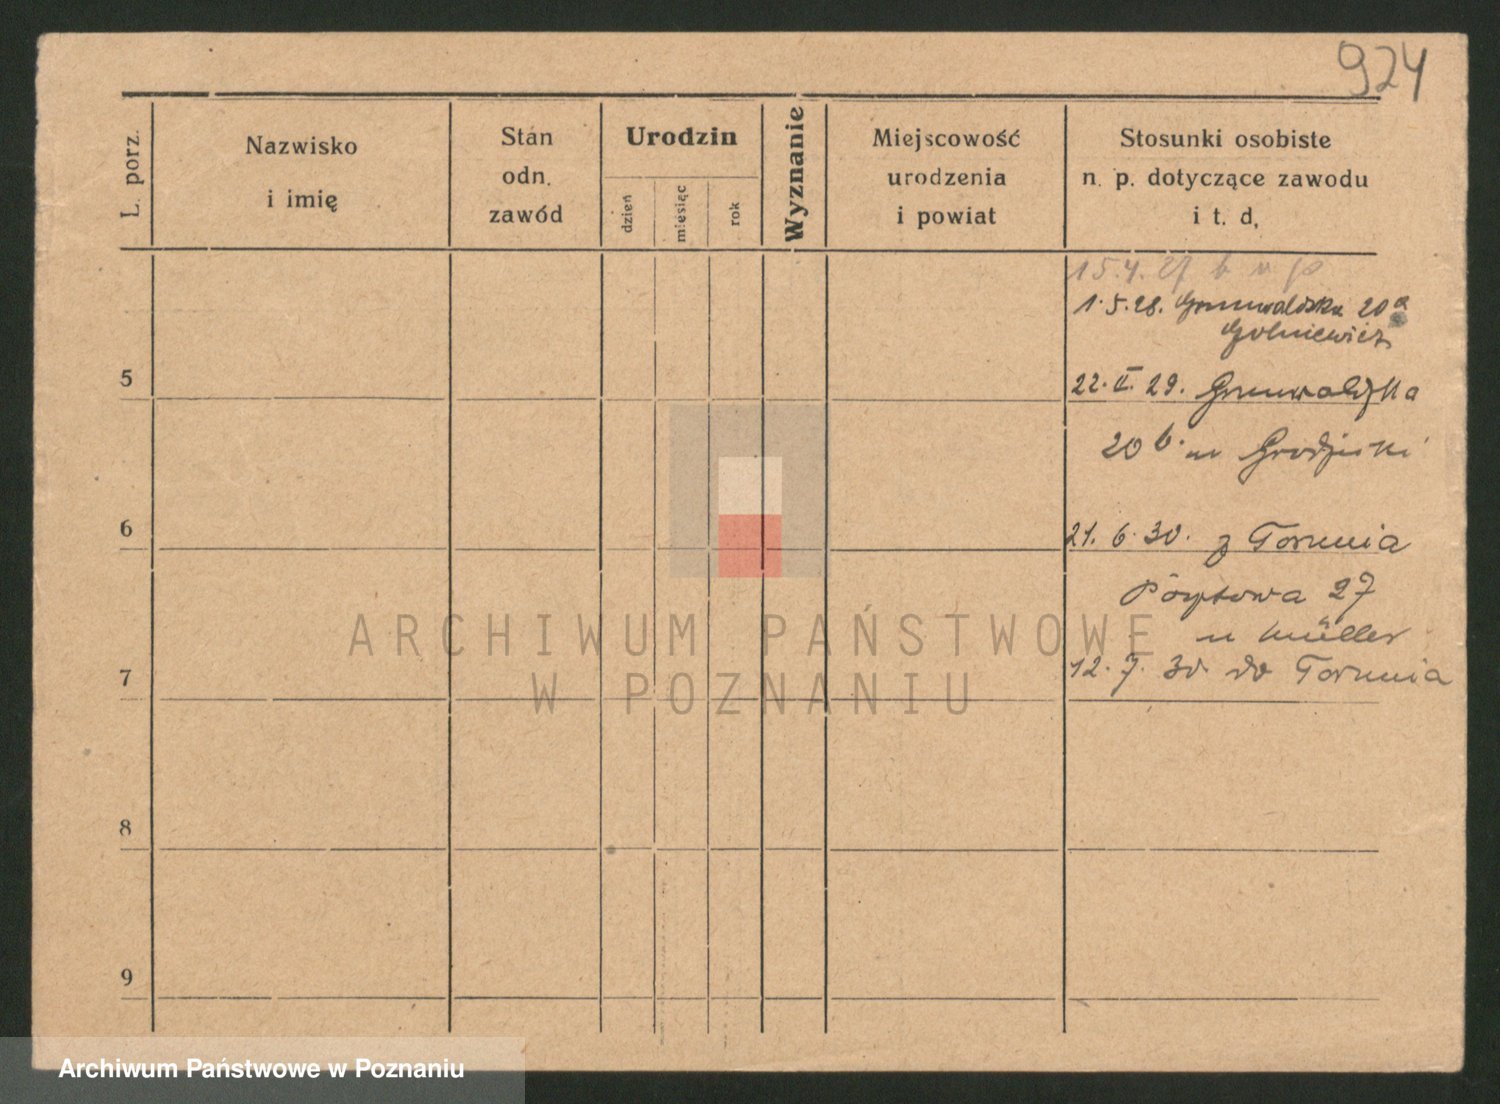 924
L. porz.
Nazwisko
i imię
Stan
odn.
zawód
Urodzin
dzień
miesiąc
rok
Wyznanie
Miejscowość
urodzenia
i powiat
Stosunki osobiste
n. p. dotyczące zawodu
i t. d,
15.4.27
1.5.28. Grunwaldzka 20a
22.II.29. Grunwaldzka
5
20 b. u Grodziski
6
21. 6. 30. z Torunia
Pocztowa 27
u Müller
12. 7. 30 do Torunia
7
8
9
ARCHIWUM PAŃSTWOWE
W POZNANIU
Archiwum Państwowe w Poznaniu